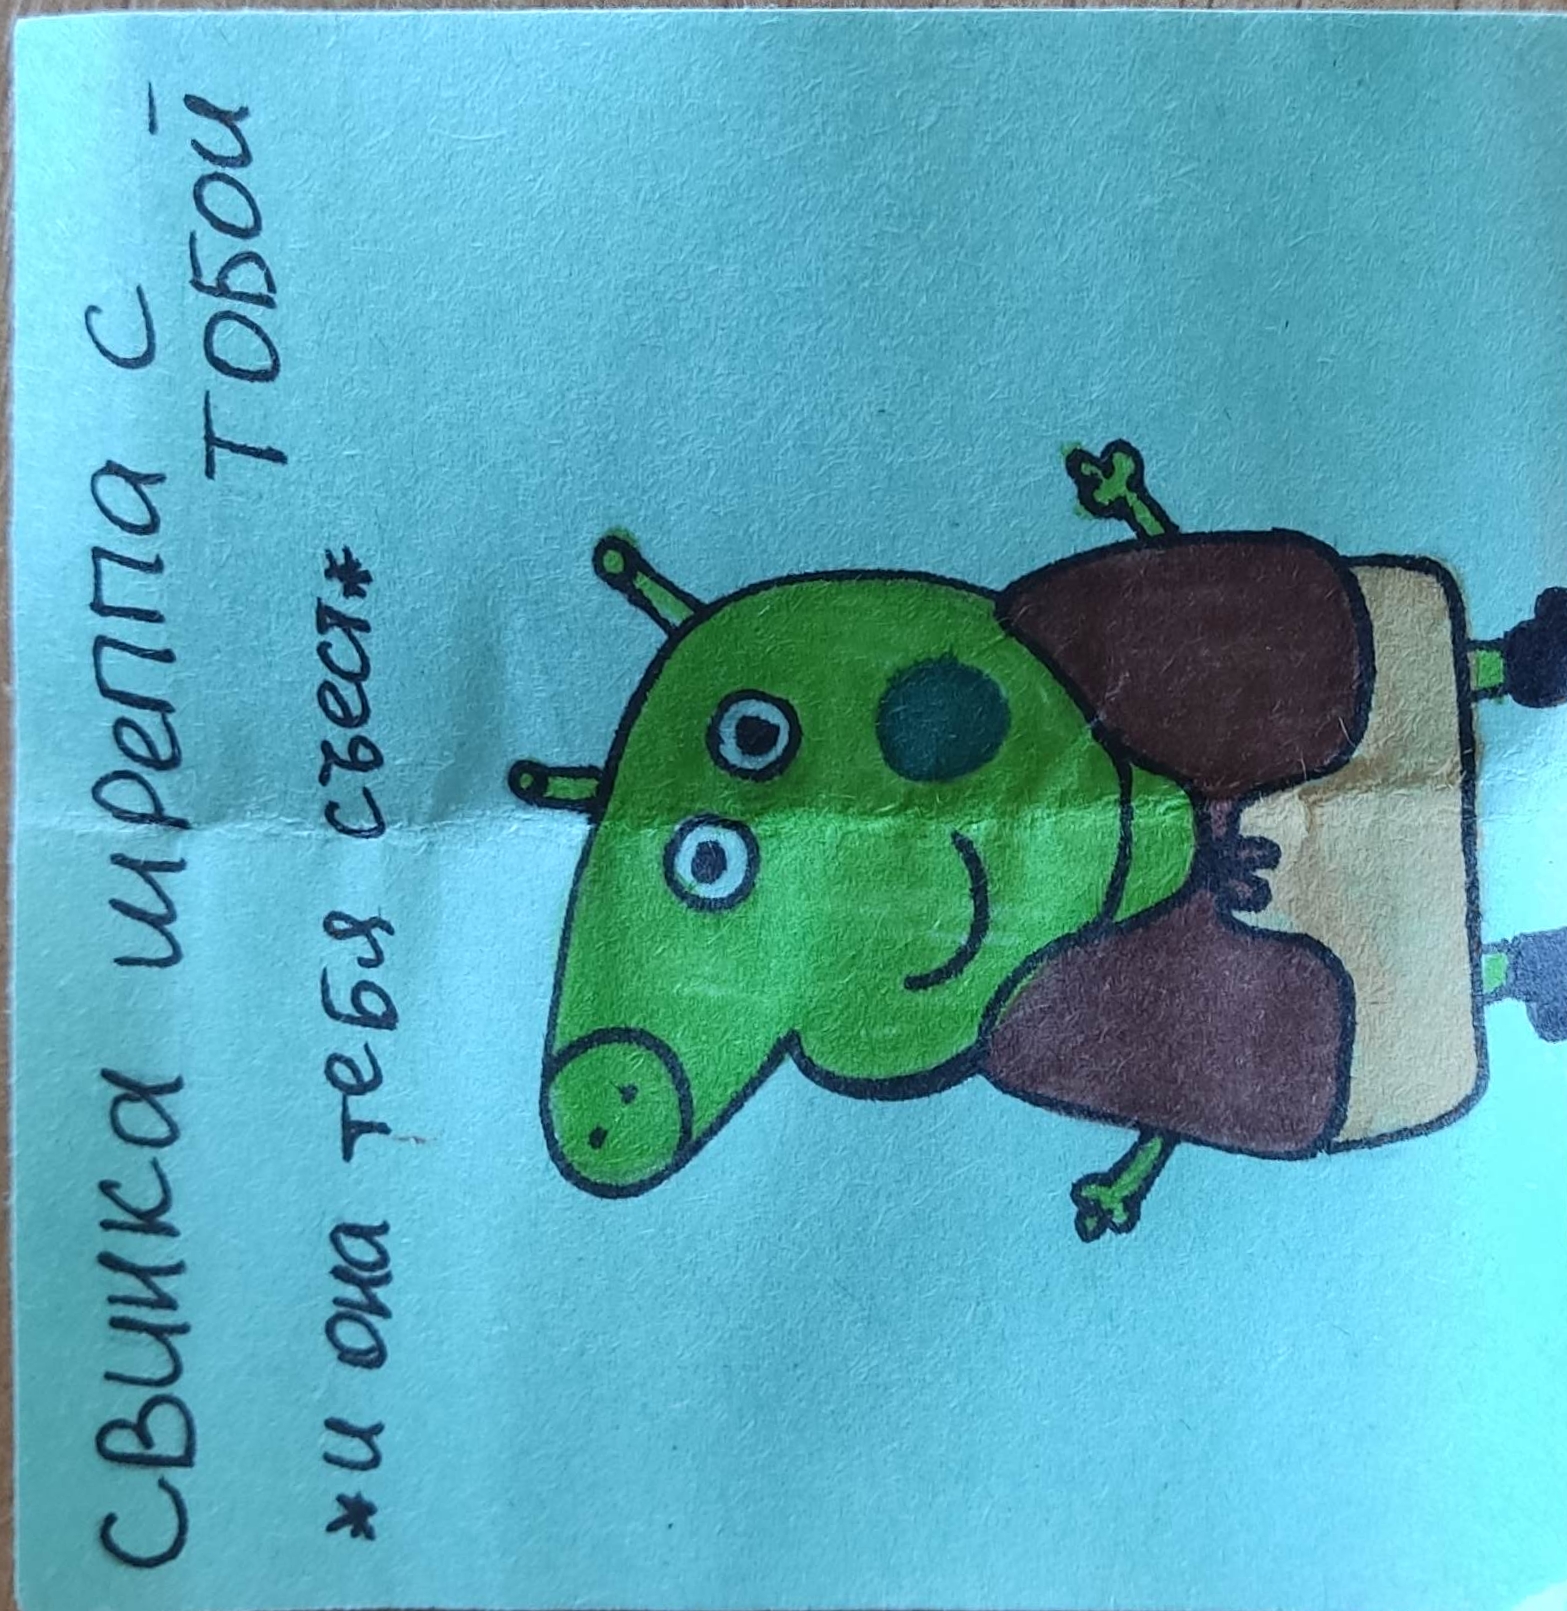 СВИНКА ШРеППА С
ТОБОЙ
*и она тебя съест*